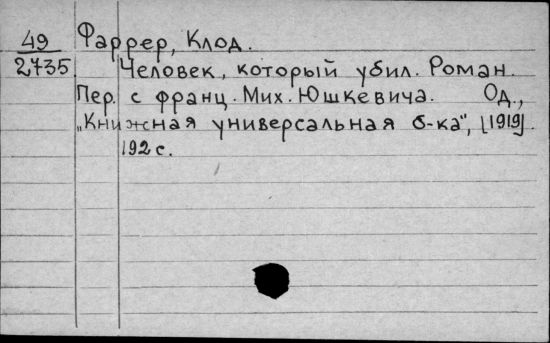 49 Фаррер, Клод.
2735 Человек, который убил. Роман.
Пер. с франц. Мих. Юшкевича. Од.,
„Книжная универсальная б-ка", [1919].
192 с.